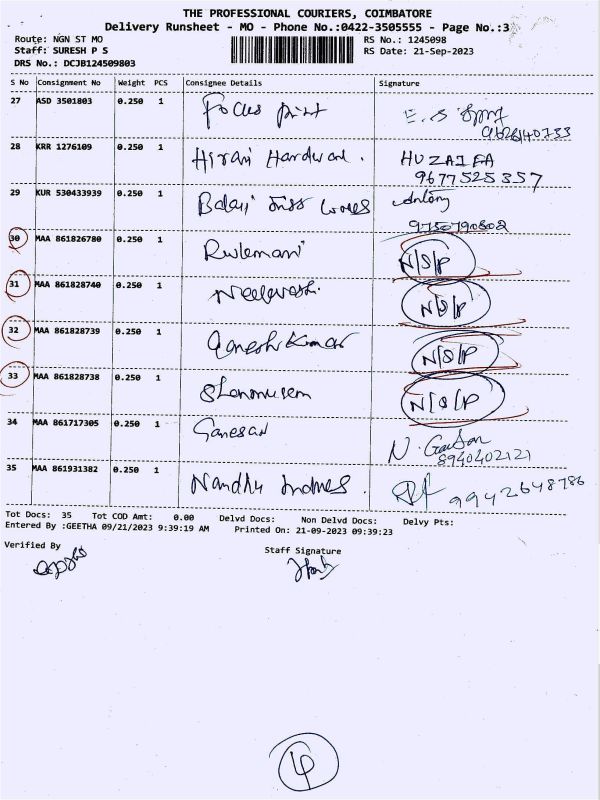 THE PROFESSIONAL COURIERS, COIMBATORE
Delivery Runsheet - MO - Phone No.:0422-3505555 - Page No.:3
Route: NGN ST MO RS No.: 1245098
Staff: SURESH P S RS Date: 21-Sep-2023
DRS No.: DCJB124509803
S No Consignment No Weight PCS Consignee Details Signature
27 ASD 3501803 0.250 1 Focus print
9626140733
28 KRR 1276109 0.250 1 Hirani Hardware. HUZAIFA
9677525357
29 KUR 530433939 0.250 1 Balaji Antony
9750790802
30 MAA 861826780 0.250 1 N/S/P
31 MAA 861828740 0.250 1 N/S/P
32 MAA 861828739 0.250 1 Ganesh Kumar N/S/P
33 MAA 861828738 0.250 1 N/S/P
34 MAA 861717305 0.250 1 Ganesan N.
8940402121
35 MAA 861931382 0.250 1 Nandhu 9942648786
Tot Docs: 35 Tot COD Amt: 0.00 Delvd Docs: Non Delvd Docs: Delvy Pts:
Entered By :GEETHA 09/21/2023 9:39:19 AM Printed On: 21-09-2023 09:39:23
Verified By Staff Signature